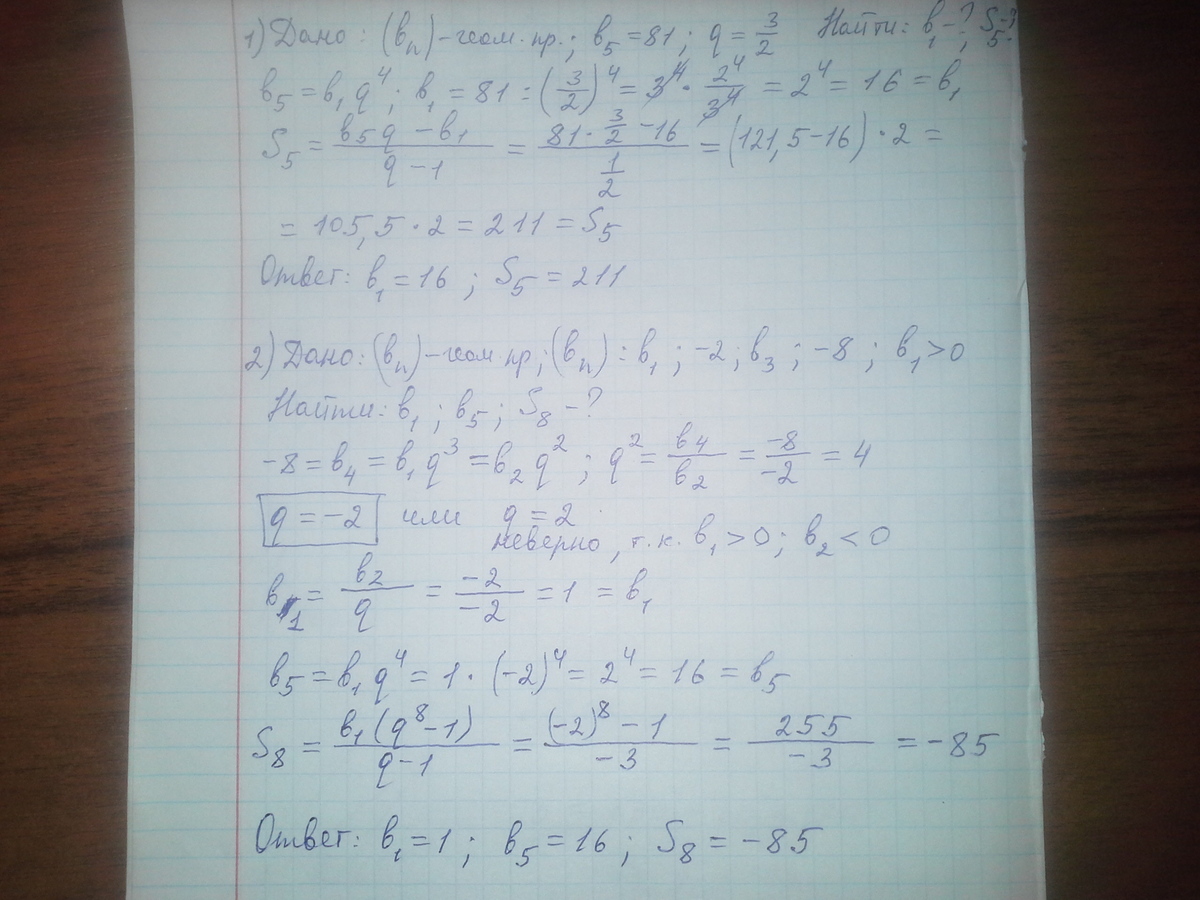 1) Дано: (bₙ) – геом. пр.; b₅ = 81; q = 3/2 Найти: b₁ – ?; S₅ – ?
b₅ = b₁q⁴; b₁ = 81 : (3/2)⁴ = 3⁴ · 2⁴/3⁴ = 2⁴ = 16 = b₁
S₅ = (b₅q – b₁)/(q – 1) = (81 · 3/2 – 16)/(1/2) = (121,5 – 16) · 2 =
= 105,5 · 2 = 211 = S₅
Ответ: b₁ = 16 ; S₅ = 211
2) Дано: (bₙ) – геом. пр.; (bₙ) : b₁ ; -2 ; b₃ ; -8 ; b₁ > 0
Найти: b₁ ; b₅ ; S₈ – ?
-8 = b₄ = b₁q³ = b₂q² ; q² = b₄/b₂ = -8/-2 = 4
q = -2 или q = 2
неверно, т.к. b₁ > 0 ; b₂ < 0
b₁ = b₂/q = -2/-2 = 1 = b₁
b₅ = b₁q⁴ = 1 · (-2)⁴ = 2⁴ = 16 = b₅
S₈ = b₁(q⁸ – 1)/(q – 1) = ((-2)⁸ – 1)/-3 = 255/-3 = -85
Ответ: b₁ = 1 ; b₅ = 16 ; S₈ = -85